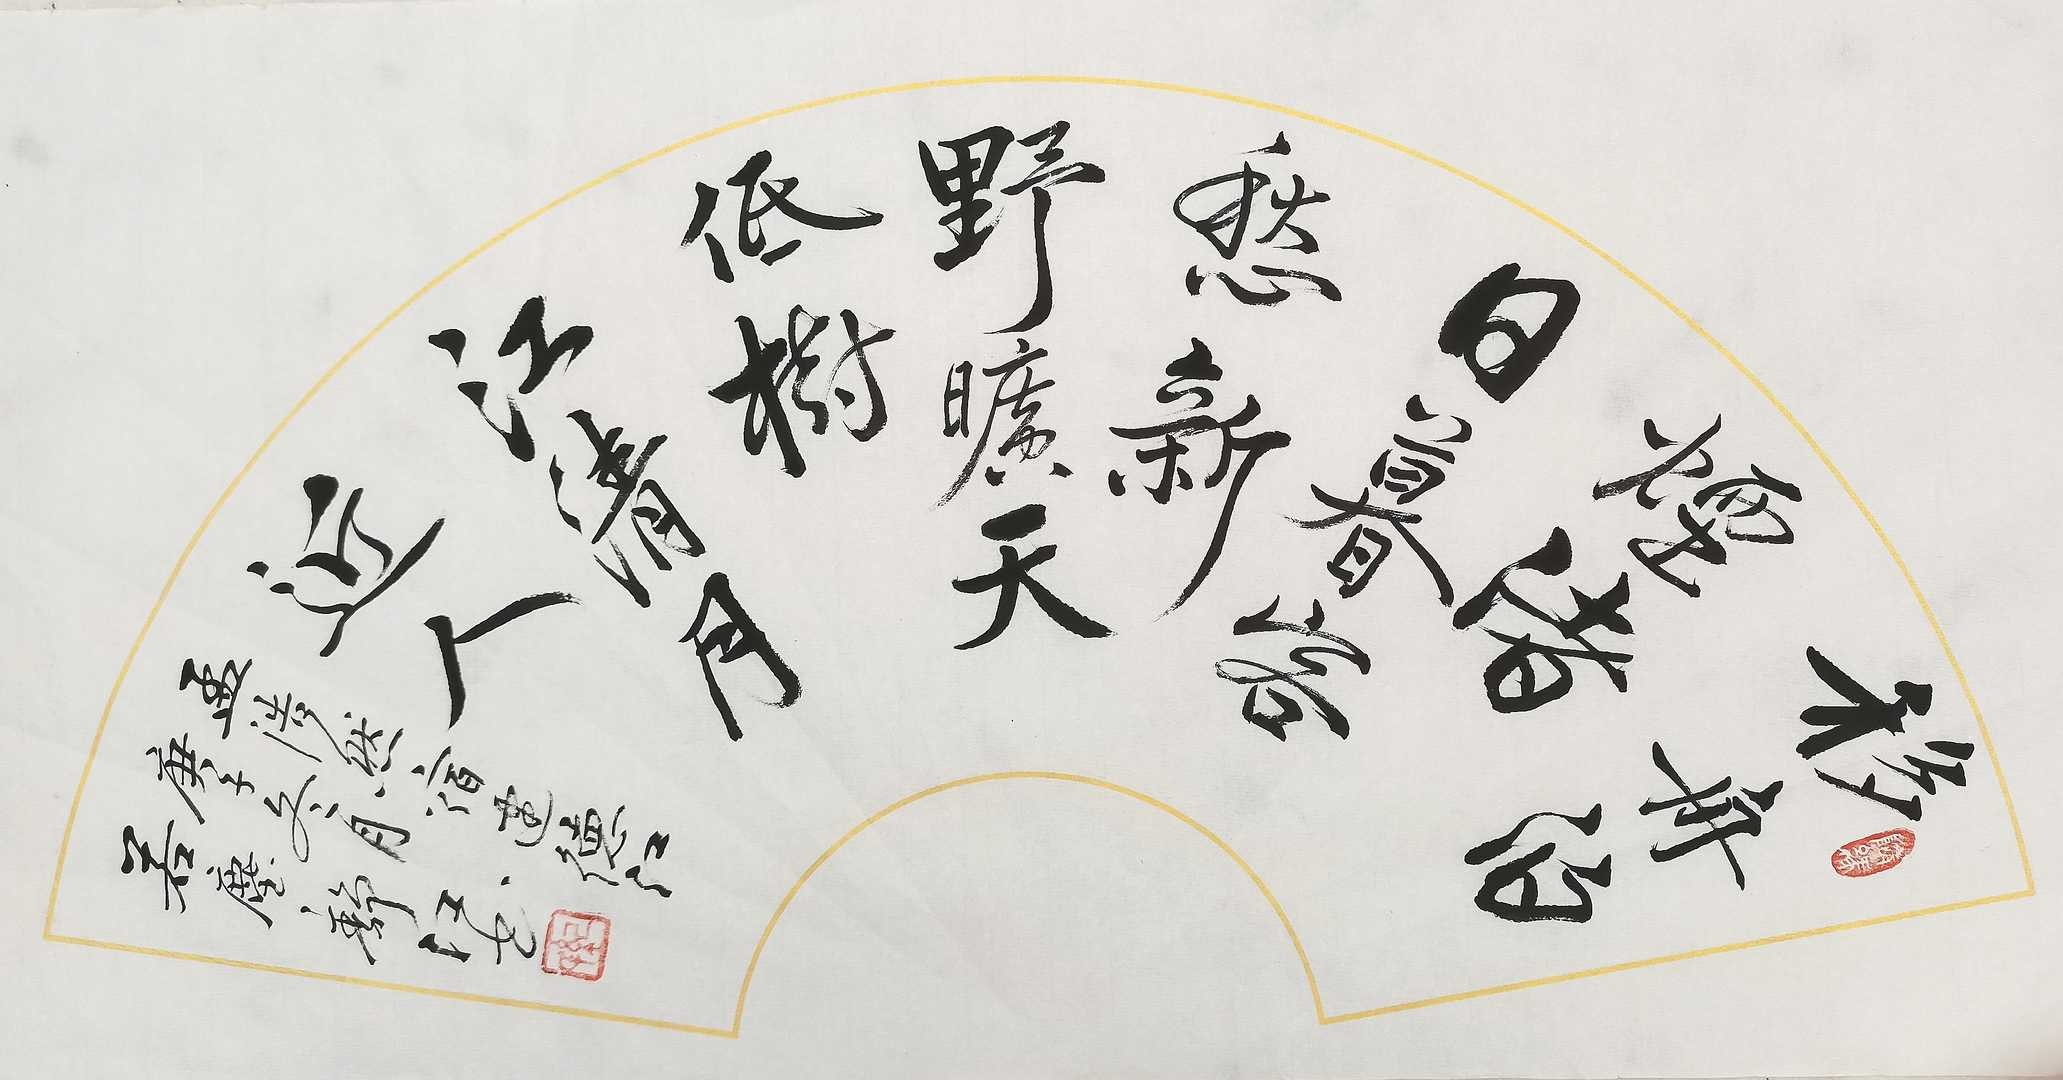 移舟泊
煙渚
日暮客
愁新
野曠天
低樹
江清月
近人
孟浩然宿建德江
庚子月